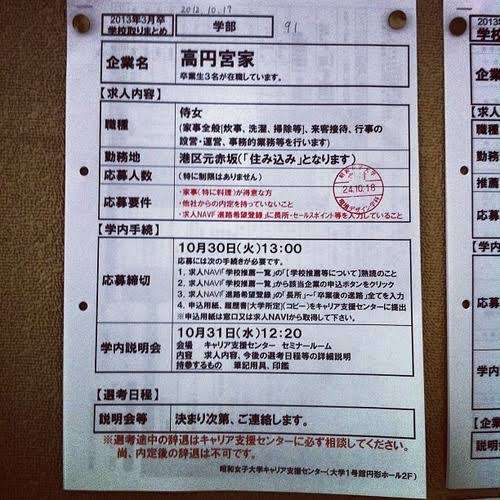 2012.10.17
2013年3月卒
学校取りまとめ
学部
91
企業名
高円宮家
卒業生3名が在職しています。
【求人内容】
職種
侍女
(家事全般[炊事、洗濯、掃除等]、来客接待、行事の
設営・運営、事務的業務等を行います)
勤務地
港区元赤坂(「住み込み」となります)
応募人数
(特に制限はありません)
応募要件
・家事(特に料理)が得意な方
・他社からの内定を持っていないこと
・求人NAVI「進路希望登録」に長所・セールスポイント等を入力していること
24.10.18
【学内手続】
応募締切
10月30日(火)13:00
応募には次の手続きが必要です。
1. 求人NAVI「学校推薦一覧」の「【学校推薦等について】熟読のこと
2. 求人NAVI「学校推薦一覧」から該当企業の申込ボタンをクリック
3. 求人NAVI「進路希望登録」の「長所」~「卒業後の進路」全てを入力
4. 申込用紙、履歴書(大学所定)(コピー)をキャリア支援センターに提出
※申込用紙は窓口又は求人NAVIから取得して下さい。
学内説明会
10月31日(水)12:20
会場 キャリア支援センター セミナールーム
内容 求人内容、今後の選考日程等の詳細説明
持参するもの 筆記用具、印鑑
【選考日程】
説明会等
決まり次第、ご連絡します。
※選考途中の辞退はキャリア支援センターに必ず相談してください。
尚、内定後の辞退は不可です。
昭和女子大学キャリア支援センター(大学1号館円形ホール2F)